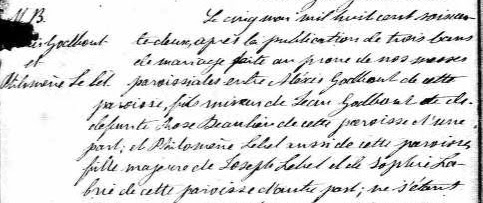 M.B.
Godbout
et
Philomène Le bel
Le cinq mai mil huit cent soixan
te deux, après la publication de trois bans
de mariage faite au prone de nos messes
paroissiales entre Alexis Godbout de cette
paroisse, fils mineur de Jean Godbout et de
defunte Rose Beaulieu de cette paroisse d'une
part; et Philomène Lebel aussi de cette paroisse
fille majeure de Joseph Lebel et de Sophie La-
brie de cette paroisse d'autre part; ne s'étant